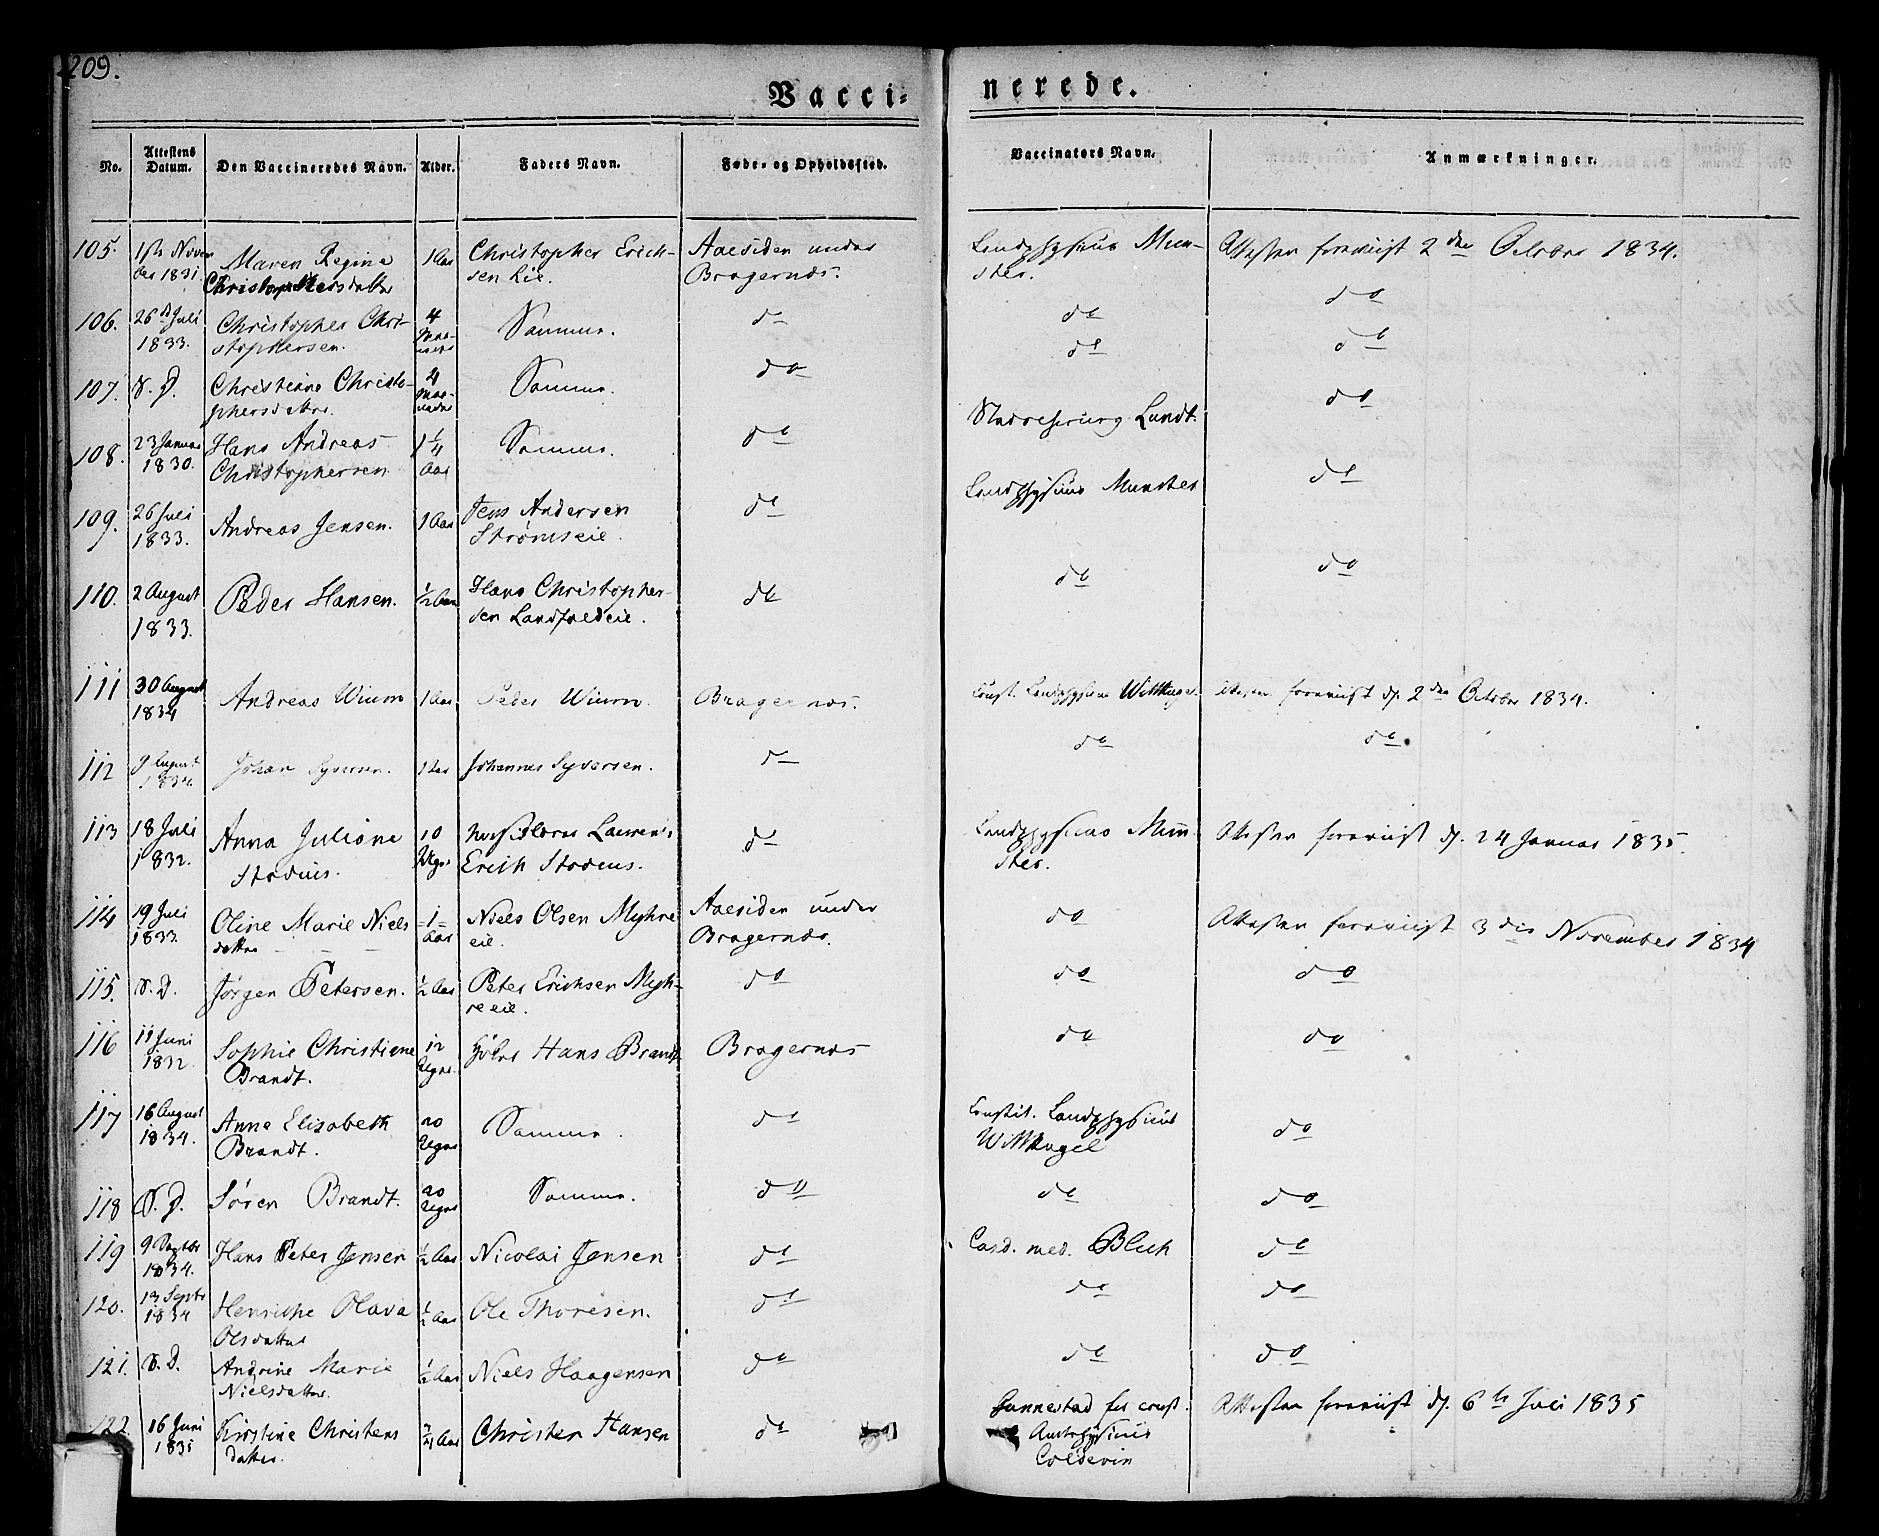 209.
Vacci-
nerede.
No.
Attestens Datum.
Den Vaccineredes Navn.
Alder.
Faders Navn.
Føde- og Opholdssted.
Vaccinators Navn.
Anmærkninger.
105. 1ste Novem- Maren Regine 1 Aar Christopher Erich- Aaesiden under Landphysicus Mun- Attesten foreviist 2den October 1834.
ber 1831. Christophersdatter sen Eie. Bragernæs. ster.
106. 26d Juli Christopher Chri- 4 Samme. do do do
1833. stophersen. Maa-
neder
107. S. D. Christiane Christo- 4 Samme. do do do
phersdatter. Maa-
neder
108. 23 Januar Hans Andreas 1 1/4 Samme. do Stadschirurg Lundt. do
1830. Christophersen Aar
109. 26 Juli Andreas Jensen. 1 Aar Jens Andersen do Landphysicus Munster do
1833. Strømseie.
110. 2 August Peder Hansen. 1/2 Aar Hans Christopher- do do do
1833. sen Landfaldeie.
111 30 August Andreas Wium 1 Aar. Peder Wium. Bragernæs. Const. Landphysicus Wittkugel. Attesten foreviist d. 2den October 1834.
1834
112 9 August Johan Syversen. 1 Aar Johannes Syversen. do do do
1834.
113 18 Juli Anna Juliane 10 Laurents do Landphysicus Mun- Attesten foreviist d. 24 Januar 1835.
1832. Stodius. Uger Erich Stodius. ster.
114 19 Juli Oline Marie Niels 1 Niels Olsen Myhre Aaesiden under do Attesten foreviist 3die November 1834
1833. datter Aar eie. Bragernæs.
115. S. D. Jørgen Petersen. 1/2 Aar Peter Erichsen Myh- do do do
re eie.
116 11 Juni Sophie Christiane 12 Hans Brandt Bragernæs do do
1832. Brandt. Uger.
117 16 August Anne Elisabeth 20 Samme. do Constit. Landphysicus do
1834. Brandt. Uger Wittkugel
118 S. D. Søren Brandt. 20 Samme. do do do
Uger
119 9 Hans Peter Jensen 1/2 Aar Nicolai Jensen do Cand. med. Blich do
1834.
120. 13 Septbr Henriche Olava 1/2 Aar Ole Thoresen. do do do
1834 Olsdatter
121. S. D. Andrine Marie 1/2 Aar Niels Haagensen do do do
Nielsdatter.
122 16 Juni Kirstine Christens 3/4 Aar Christen Hansen do Gunnestad for const. Attesten foreviist d. 6te Juli 1835
1835 datter. Amtsphysicus
Coldevin